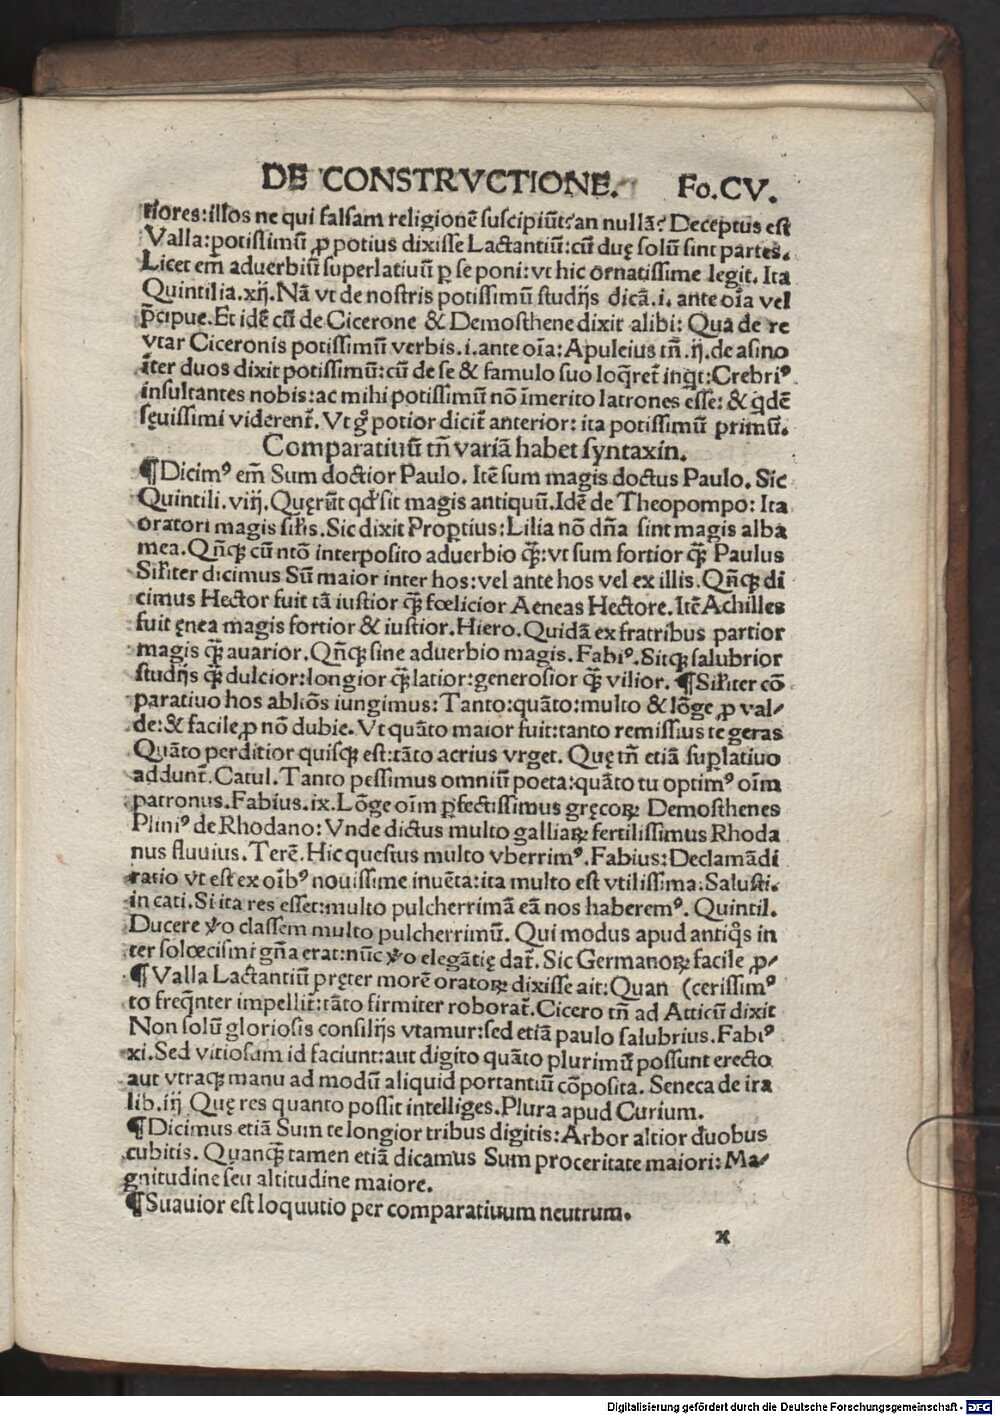 DE CONSTRVCTIONE. Fo.CV.
riores:illos ne qui falsam religionē suscipiūt?an nullā? Deceptus est
Valla:potissimū ꝓ potius dixisse Lactantiū:cū duę solū sint partes.
Licet em̄ aduerbiū superlatiuū ꝑ se poni:vt hic ornatissime legit̄. Ita
Quintilia.xij.Nā vt de nostris potissimū studijs dicā.i. ante oīa vel
p̄cipue.Et idē cū de Cicerone & Demosthene dixit alibi: Qua de re
vtar Ciceronis potissimū verbis.i.ante oīa: Apuleius tn̄.ij.de asino
īter duos dixit potissimū:cū de se & famulo suo loq̄ret̄ inqt:Crebriꝰ
insultantes nobis:ac mihi potissimū nō īmerito latrones esse: & qdē
sęuissimi viderent̄. Vt gͦ potior dicit̄ anterior: ita potissimū primū.
Comparatiuū tn̄ variā habet syntaxin.
¶Dicimꝰ em̄ Sum doctior Paulo. Itē sum magis doctus Paulo. Sic
Quintili.viij.Quęrūt qd̛ sit magis antiquū.Idē de Theopompo: Ita
oratori magis sił̛is.Sic dixit Proꝑtius:Lilia nō dn̄a sint magis alba
mea.Qn̄cꝗ cū ntō interposito aduerbio q̄ꝫ:vt sum fortior q̄ꝫ Paulus
Sił̛iter dicimus Sū maior inter hos:vel ante hos vel ex illis.Qn̄cꝗ di
cimus Hector fuit tā iustior q̄ꝫ fœlicior Aeneas Hectore.Itē Achilles
fuit ęnea magis fortior & iustior.Hiero.Quidā ex fratribus partior
magis q̄ꝫ auarior.Qn̄cꝗ sine aduerbio magis.Fabiꝰ.Sitꝗ salubrior
studijs q̄ꝫ dulcior:longior q̄ꝫ latior:generosior q̄ꝫ vilior. ¶Sił̛iter cō
paratiuo hos abltōs iungimus: Tanto:quāto:multo & lōge ꝓ val/
de:& facile ꝓ nō dubie. Vt quāto maior fuit:tanto remissius te geras
Quāto perditior quisꝗ est:tāto acrius vrget. Quę tn̄ etiā suꝑlatiuo
addunt̄.Catul.Tanto pessimus omniū poeta:quāto tu optimꝰ oīm
patronus.Fabius.ix.Lōge oīm ꝑfectissimus gręcoꝝ Demosthenes
Pliniꝰ de Rhodano: Vnde dictus multo galliaꝝ fertilissimus Rhoda
nus fluuius.Terē.Hic questus multo vberrimꝰ.Fabius:Declamādi
ratio vt est ex oībꝰ nouissime inuēta:ita multo est vtilissima.Salusti.
in cati.Si ita res esset:multo pulcherrimā eā nos haberemꝰ. Quintil.
Ducere v̛o classem multo pulcherrimū. Qui modus apud antiqs in
ter solœcismi gn̄a erat:nūc v̛o elegātię dat̄. Sic Germanoꝝ facile ꝓ/
¶Valla Lactantiū pręter morē oratoꝝ dixisse ait:Quan (cerissimꝰ
to freq̄nter impellit̄:tāto firmiter roborat̄.Cicero tn̄ ad Atticū dixit
Non solū gloriosis consilijs vtamur:sed etiā paulo salubrius.Fabiꝰ
xi.Sed vitiosum id faciunt:aut digito quāto plurimū possunt erecto
aut vtraꝗ manu ad modū aliquid portantiū cōposita. Seneca de ira
lib.iij Quę res quanto possit intelliges.Plura apud Curium.
¶Dicimus etiā Sum te longior tribus digitis:Arbor altior duobus
cubitis. Quanq̄ꝫ tamen etiā dicamus Sum proceritate maiori: Ma/
gnitudine seu altitudine maiore.
¶Suauior est loquutio per comparatiuum neutrum.
x
Digitalisierung gefördert durch die Deutsche Forschungsgemeinschaft - DFG